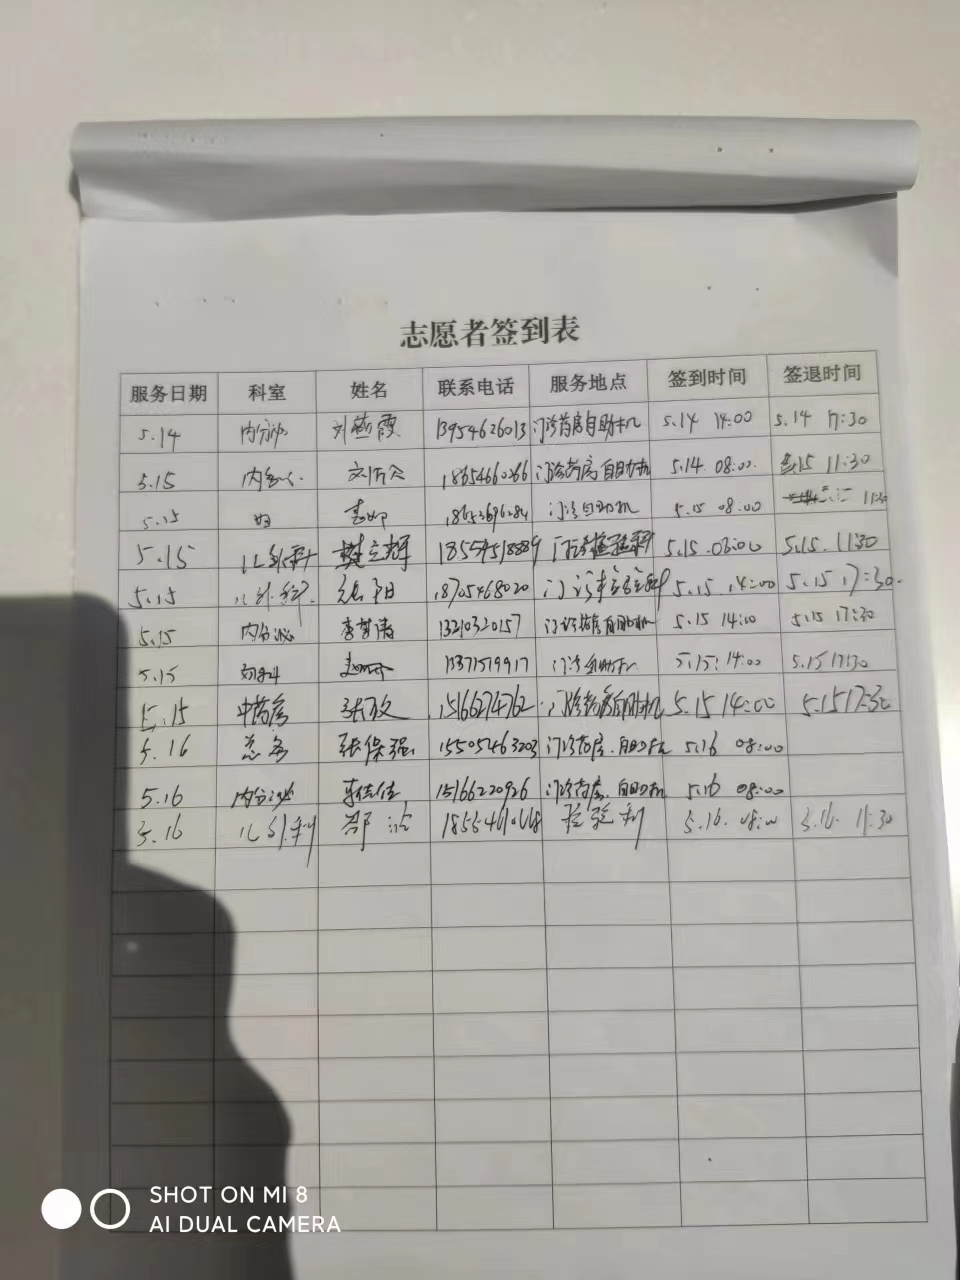 志愿者签到表
服务日期 科室 姓名 联系电话 服务地点 签到时间 签退时间
5.14 内分泌 刘燕霞 13954626013 门诊药房自助机 5.14 14:00 5.14 17:30
5.15 门诊药房自助机 5.14 08:00 5.15 11:30
5.15 妇 门诊自助机 5.15 08:00 11:30
5.15 儿外科 樊立辉 5.15 08:00 5.15 11:30
5.15 儿外科 18705468020 门诊 5.15 14:00 5.15 17:30
5.15 内分泌 13210320157 门诊药房自助机 5.15 14:00 5.15 17:30
5.15 13371519917 门诊自助机 5.15 14:00 5.15 17:30
5.15 中药房 张政 15166274762 门诊药房自助机 5.15 14:00 5.15 17:30
5.16 总务 张保强 15505463203 门诊药房自助机 5.16 08:00
5.16 内分泌 15166220926 门诊药房自助机 5.16 08:00
5.16 儿外科 检验科 5.16 08:00 5.16 11:30
SHOT ON MI 8
AI DUAL CAMERA